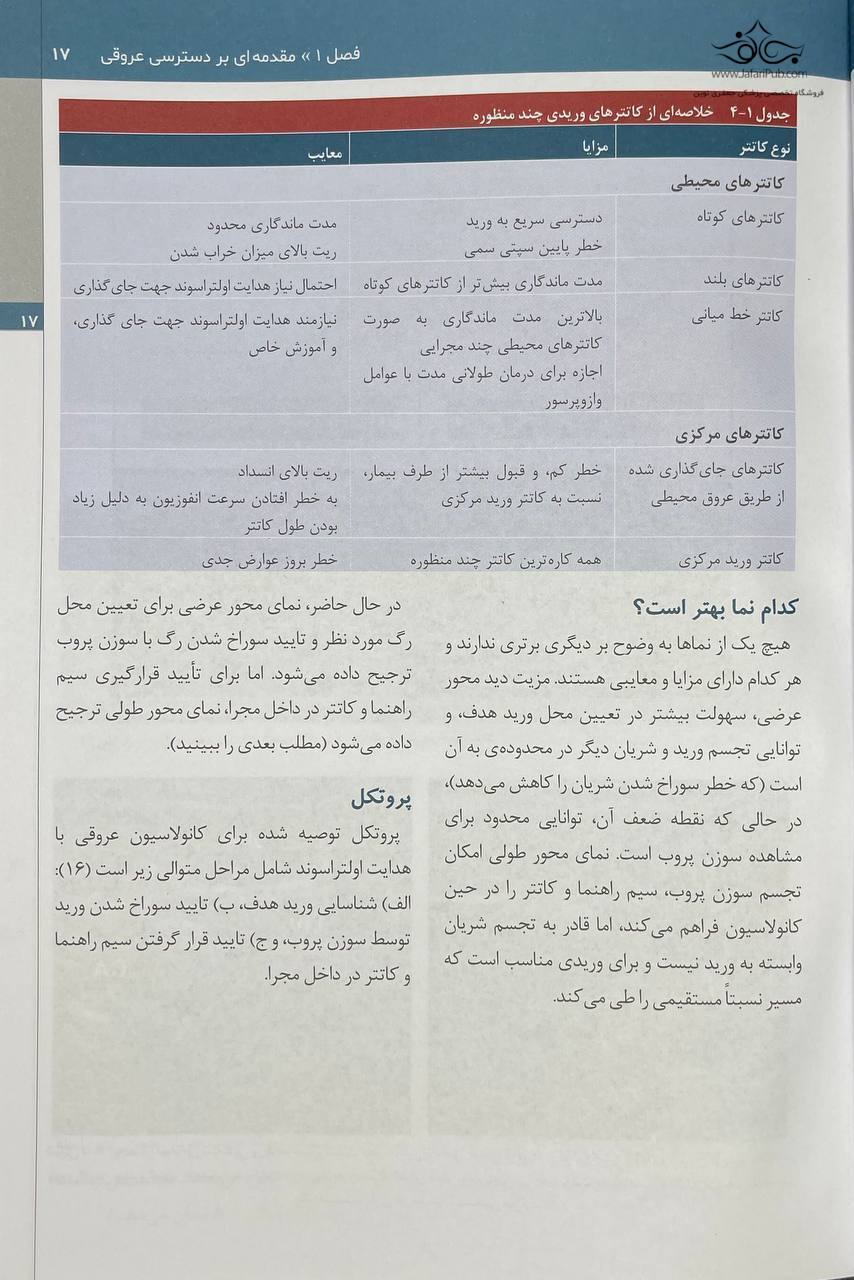 فصل ۱ » مقدمه‌ای بر دسترسی عروقی ۱۷
www.JafariPub.com
فروشگاه تخصصی پزشکی جعفری نوین
جدول ۱-۴ خلاصه‌ای از کاتترهای وریدی چند منظوره
نوع کاتتر مزایا معایب
کاتترهای محیطی
کاتترهای کوتاه دسترسی سریع به ورید مدت ماندگاری محدود
خطر پایین سپتی سمی ریت بالای میزان خراب شدن
کاتترهای بلند مدت ماندگاری بیش‌تر از کاتترهای کوتاه احتمال نیاز هدایت اولتراسوند جهت جای‌گذاری
کاتتر خط میانی بالاترین مدت ماندگاری به صورت نیازمند هدایت اولتراسوند جهت جای گذاری،
کاتترهای محیطی چند مجرایی و آموزش خاص
اجازه برای درمان طولانی مدت با عوامل
وازوپرسور
کاتترهای مرکزی
کاتترهای جای‌گذاری شده خطر کم، و قبول بیشتر از طرف بیمار، ریت بالای انسداد
از طریق عروق محیطی نسبت به کاتتر ورید مرکزی به خطر افتادن سرعت انفوزیون به دلیل زیاد
بودن طول کاتتر
کاتتر ورید مرکزی همه کاره‌ترین کاتتر چند منظوره خطر بروز عوارض جدی
۱۷
کدام نما بهتر است؟
هیچ یک از نماها به وضوح بر دیگری برتری ندارند و
هر کدام دارای مزایا و معایبی هستند. مزیت دید محور
عرضی، سهولت بیشتر در تعیین محل ورید هدف، و
توانایی تجسم ورید و شریان دیگر در محدوده‌ی به آن
است (که خطر سوراخ شدن شریان را کاهش می‌دهد)،
در حالی که نقطه ضعف آن، توانایی محدود برای
مشاهده سوزن پروب است. نمای محور طولی امکان
تجسم سوزن پروب، سیم راهنما و کاتتر را در حین
کانولاسیون فراهم می‌کند، اما قادر به تجسم شریان
وابسته به ورید نیست و برای وریدی مناسب است که
مسیر نسبتاً مستقیمی را طی می‌کند.
در حال حاضر، نمای محور عرضی برای تعیین محل
رگ مورد نظر و تایید سوراخ شدن رگ با سوزن پروب
ترجیح داده می‌شود. اما برای تأیید قرارگیری سیم
راهنما و کاتتر در داخل مجرا، نمای محور طولی ترجیح
داده می‌شود (مطلب بعدی را ببینید).
پروتکل
پروتکل توصیه شده برای کانولاسیون عروقی با
هدایت اولتراسوند شامل مراحل متوالی زیر است (۱۶):
الف) شناسایی ورید هدف، ب) تایید سوراخ شدن ورید
توسط سوزن پروب، و ج) تایید قرار گرفتن سیم راهنما
و کاتتر در داخل مجرا.